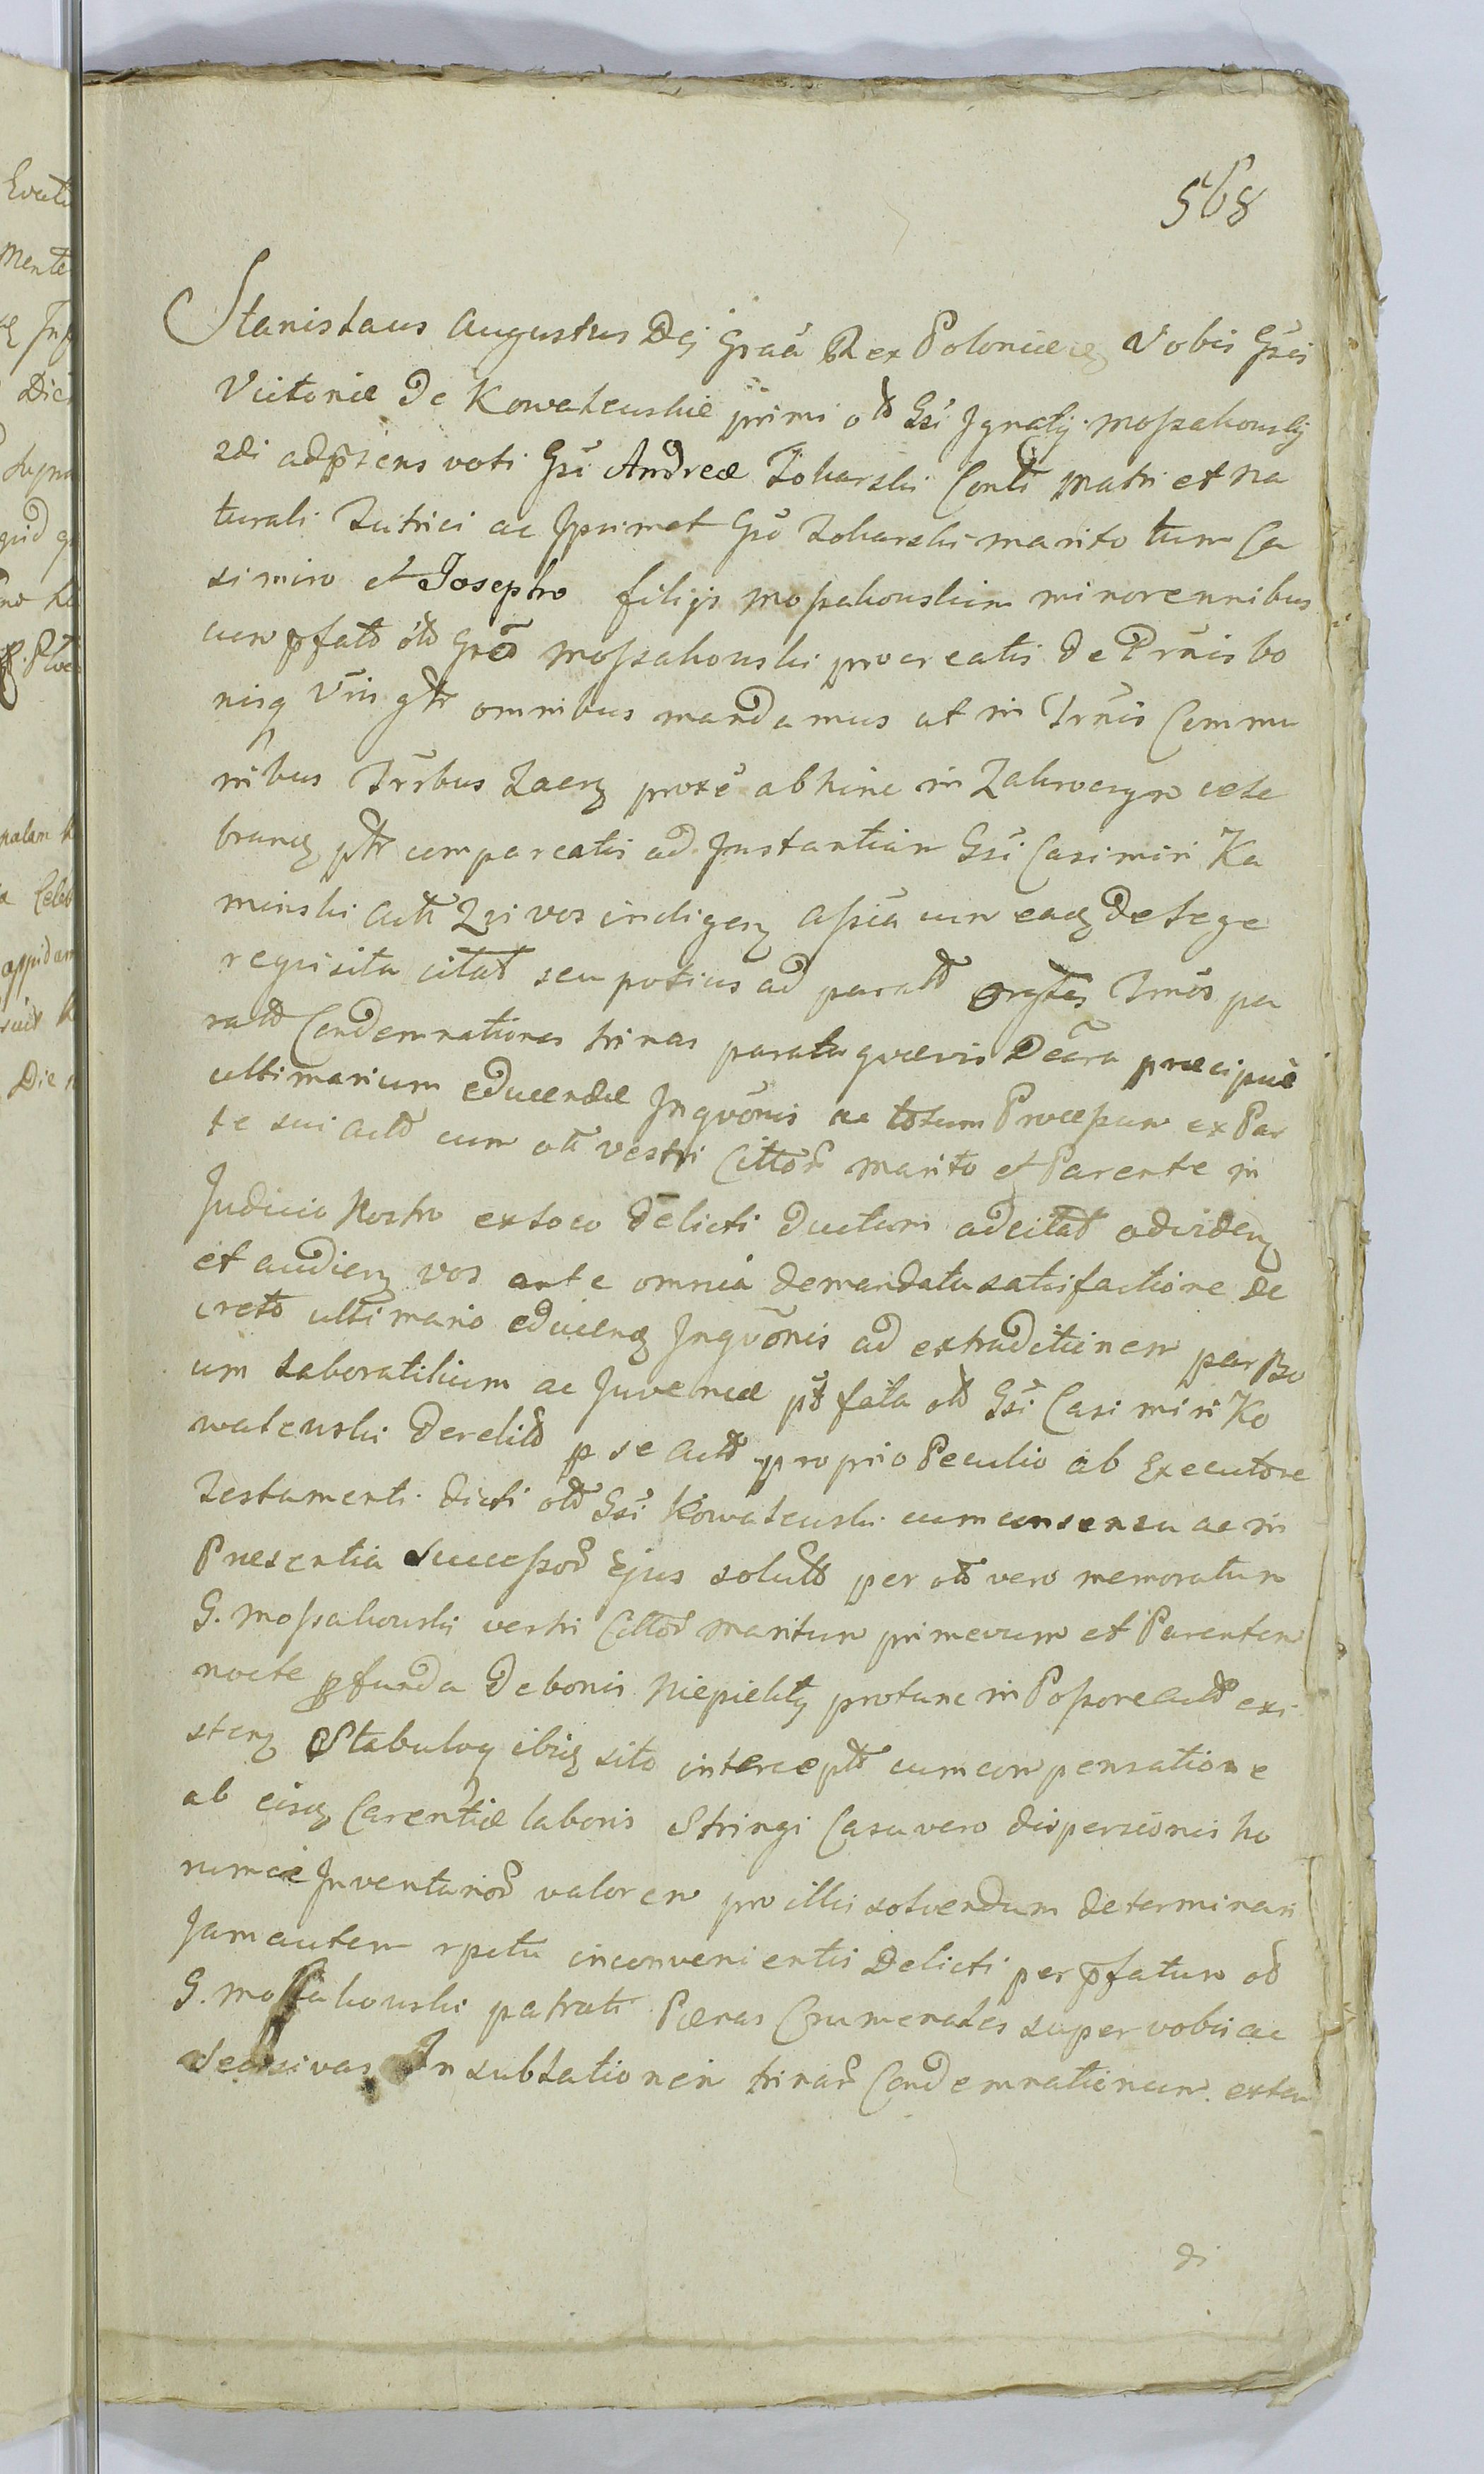 568
Stanislaus Augustus Dej Graã Rex Poloniae Vobis Gsis
Victoriæ de Kowalewskie primi oð Gsi Ignatij Mossakowskij
2di adprsens voti Gsi Andreæ Tokarski Conti Matri et na
turali Tutrici ac Ipsimet Gso Tokarski marito tum Ca
simiro et Josepho filijs Mossakowskim minorennibus
cum pfato oto Gso Mossakowski procreatis de Prnis bo
nisq Vris gtr omnibus mandamus ut in Trnis Commu
nibus Trrbus Zacrz proxe abhinc in Zakroczym cele
brandz ptr compareatis ad Instantiam Gsi Casimiri Ka
minski Actr Qui vos indigenz assia cum eadz de lege
requisita citat seu potius ad parato Orgtes Trnos pa
rato Condemnationes trinas parata quævis Decra præcipue
ultimarium educendæ Inqvonis ac totum Processum ex Par
te sui acto cum oti vestri Cittor marito et Parente in
Judicio Nostro ex loco delicti ductum adcitat ad videnz
et audienz vos ante omnia demandata satisfactione de
creto ultimario educendz Inqvonis ad extraditionem par Bo
um laboratilium ac Juvencæ pt fata oto Gsi Casimiri Ko
walewski derelito p se acto proprio Peculio ab Executore
Testamenti dicti oto Gsi Kowalewski cum consensu ac in
Præsentia Successor Ejus soluto per oto vero memoratum
G. Mossakowski vestri Cittor Maritum primevum et Parentem
nocte pfunda de bonis Niepiekły protunc in Possore acto exi
stenz Stabuloq ibidz sito intercepto cum compensatione
ab eisdz Carentiæ laboris Stringi Casu vero dispersionis ho
rumce Inventarior valorem pro illis solvendum determinari
Jam autem rptu inconvenientis Delicti per pfatum oto
G. Mossakowski patrati Pænas Crumenales super vobis ac
decisivas In sublationem trinar Condemnationum exten
di